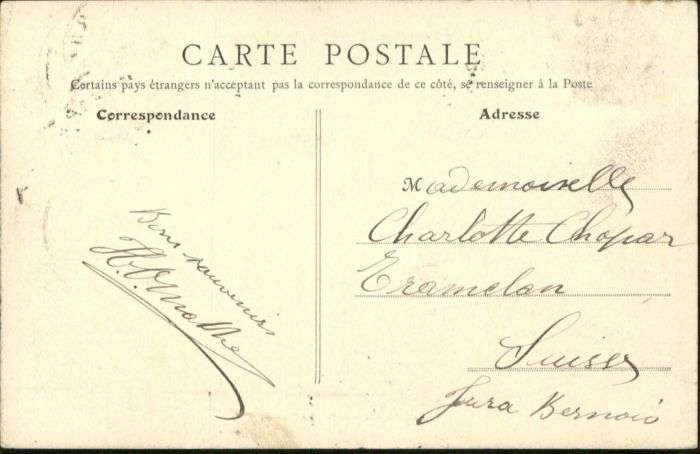 CARTE POSTALE
Certains pays étrangers n'acceptant pas la correspondance de ce côté, se renseigner à la Poste
Correspondance
Adresse
Bon souvenir
Mademoiselle
Charlotte Chopar
Tramelan
Suisse
Jura Bernois